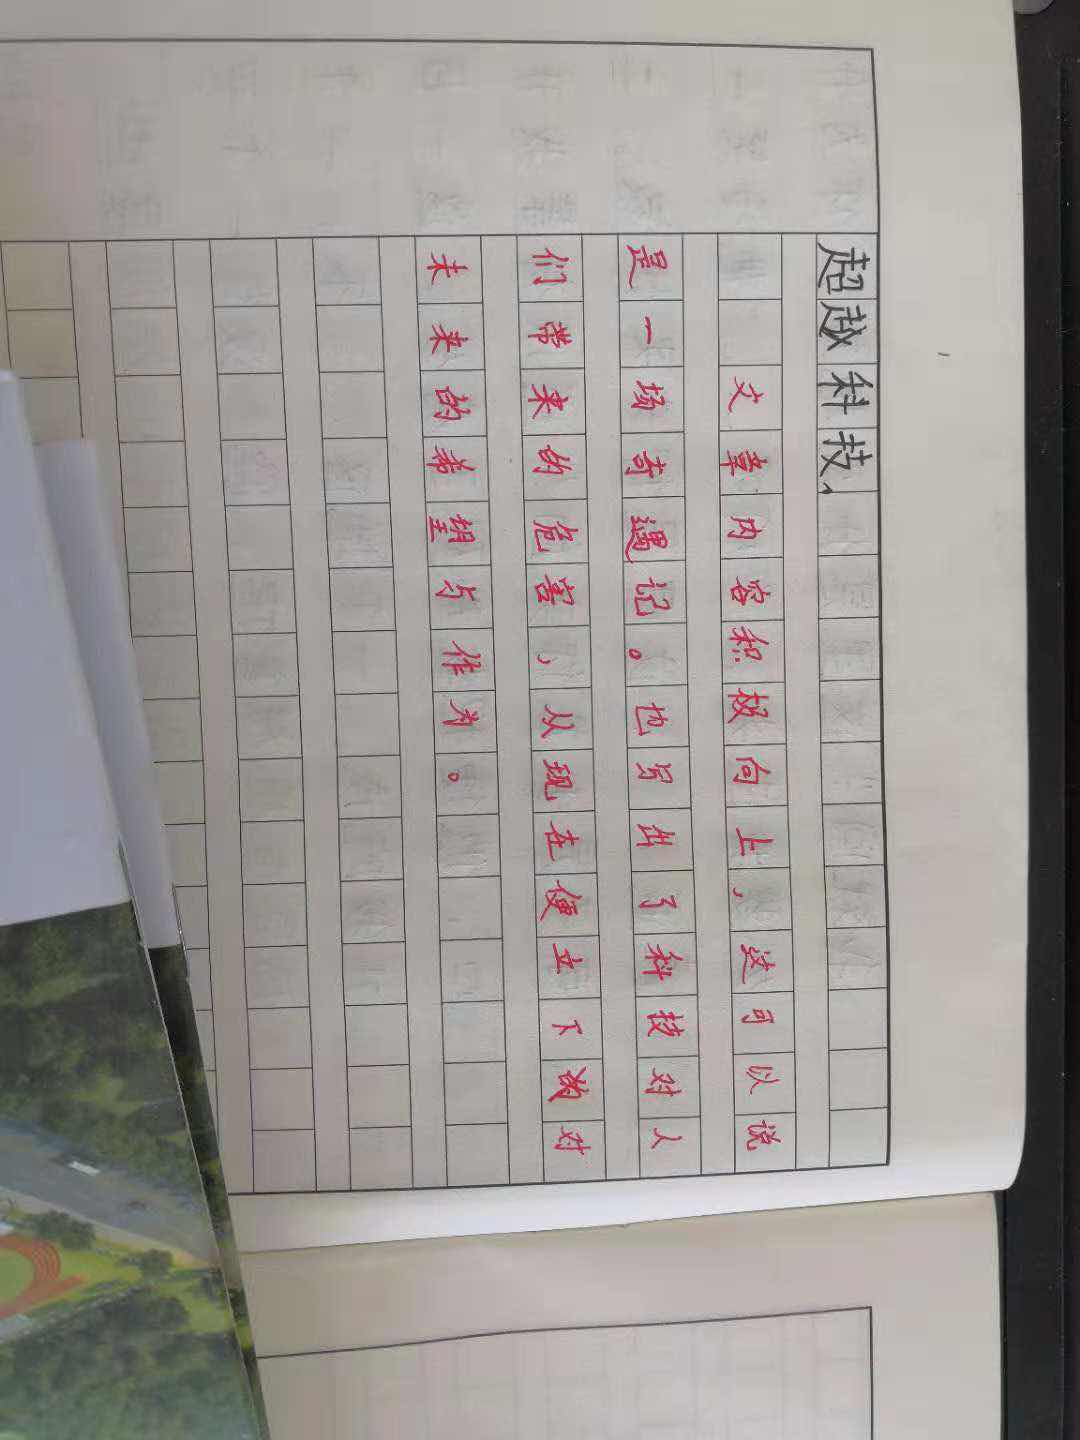 超越科技、
文章内容积极向上,这可以说
是一场奇遇记。也写出了科技对人
们带来的危害,从现在便立下做对
未来的希望与作为。